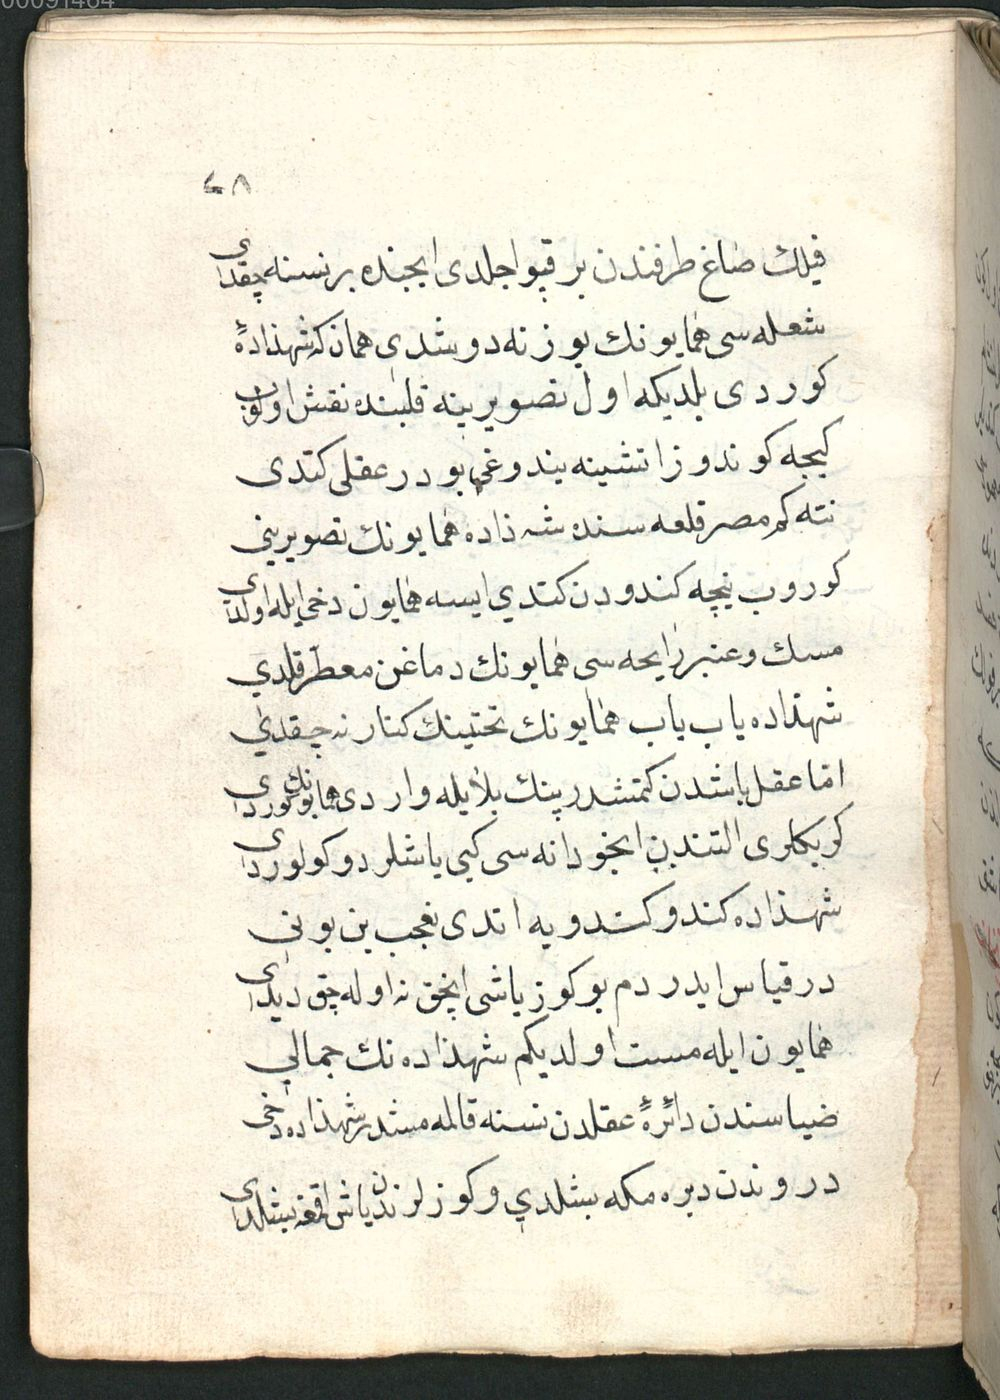 00091464
٤٨
فيلك صاغ طرفندن بر قپو اچلدى ايچنده بر نسنه چقدى
شعله سى همايونك يوزنه دوشدى همان كه شهذاده
كوردى بلديكه اول تصويرينه قلبنده نقش اولوب
كيجه كوندوز اتشينه يندوغى بودر عقلى كتدى
نته كم مصر قلعه سنده شه زاده همايونك تصويرينى
كوروب نيچه كندودن كتدي ايسه همايون دخى ايله اولدى
مسك و عنبر رايحه سى همايونك دماغن معطر قلدي
شهذاده ياب ياب همايونك تختينك كنارنه چقدي
امّا عقل باشدن كتمشدر پينك بلا يله واردى همايونك كوردى
كربكلرى التندن ايخودانه سى كبى ياشلر دوكولوردى
شهذاده كندو كندويه اتدى نعجب بن بونى
در قياس ايدردم بو كوز ياشى انجق نه اوله چق ديدى
همايون ايله مست اولديكم شهذاده نك جمالي
ضياسندن دائرهٔ عقلدن نسنه قالمه مشدر شهذاده دخى
دروندن ديره مكه بشلدي و كوزلرندن ياش اقمغه بشلدى